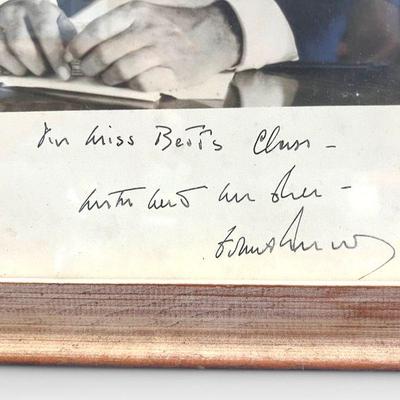 For Miss Bett's Class -
with best wishes -